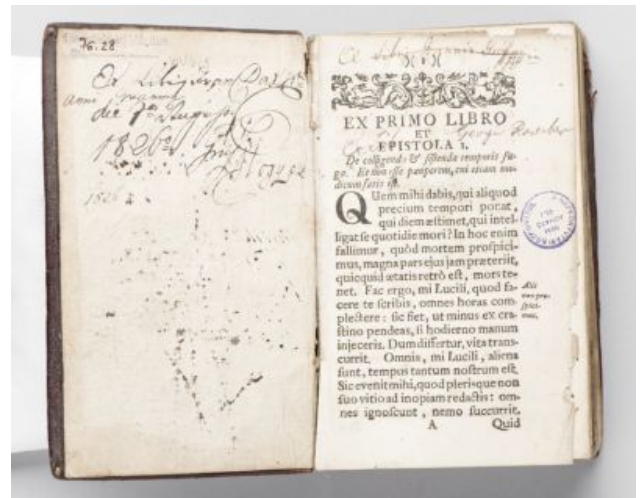 76.28
Ex
die
1826
1826
)( 1 )(
EX PRIMO LIBRO
ET
EPISTOLA 1.
De colligenda & sistenda temporis fu-
ga. Et non esse pauperem, cui etiam mo-
dicum satis est.
QUem mihi dabis, qui aliquod
precium tempori ponat,
qui diem æstimet, qui intel-
ligat se quotidie mori? In hoc enim
fallimur, quòd mortem prospici-
mus, magna pars ejus jam præteriit,
quicquid ætatis retrò est, mors te-
net. Fac ergo, mi Lucili, quod fa-
cere te scribis, omnes horas com-
plectere: sic fiet, ut minus ex cra-
stino pendeas, si hodierno manum
injeceris. Dum differtur, vita trans-
currit. Omnia, mi Lucili, aliena
sunt, tempus tantum nostrum est.
Sic evenit mihi, quod plerisque non
suo vitio ad inopiam redactis: om-
nes ignoscunt, nemo succurrit.
A Quid